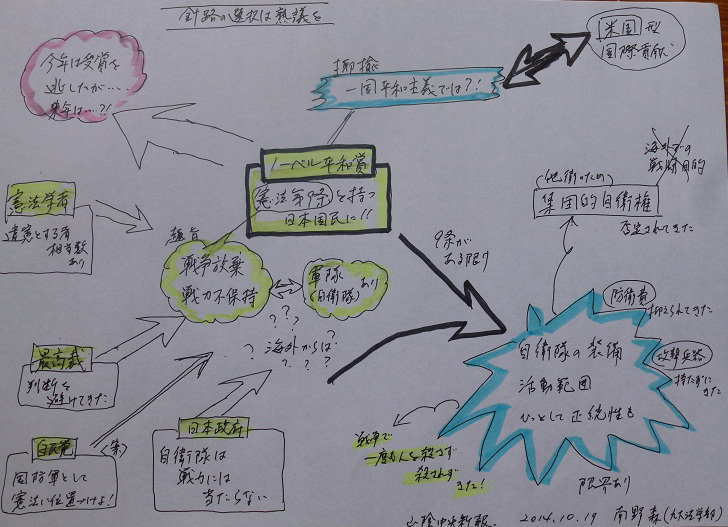 針路の選択は熟議を
今年は受賞を
逃したが…
来年は……?!
揶揄
一国平和主義では?!
米国型
国際貢献
ノーベル平和賞
憲法第9条を持つ
日本国民に!!
憲法学者
違憲とする者
相当数
あり
趣旨
戦争放棄
戦力不保持
軍隊
(自衛隊)あり
? ? ?
? 海外からは ?
? ? ?
9条が
ある限り
海外での
戦闘目的
(他衛のため)
集団的自衛権
否定されてきた
防衛費
抑えられてきた
攻撃兵器
持たずに
きた
自衛隊の装備
活動範囲
ひっとして正統性も
限界あり
最高裁
判断を
避けてきた
自民党
(案)
国防軍として
憲法に位置づけよ!
日本政府
自衛隊は
戦力には
当たらない
戦争で
一度も人を殺さず
殺されず
きた!
山陰中央新報 2014.10.19 南野森(九大法学部)